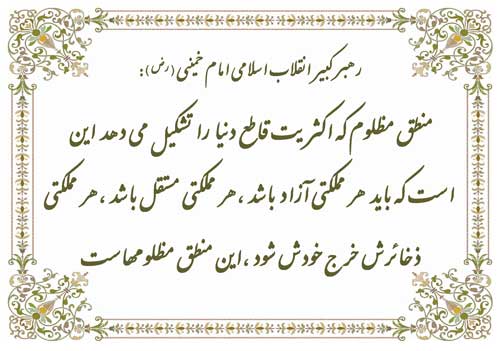 رهبر کبیر انقلاب اسلامی امام خمینی (رض):
منطق مظلوم که اکثریت قاطع دنیا را تشکیل می دهد این
است که باید هر مملکتی آزاد باشد، هر مملکتی مستقل باشد، هر مملکتی
ذخائرش خرج خودش شود، این منطق مظلومهاست